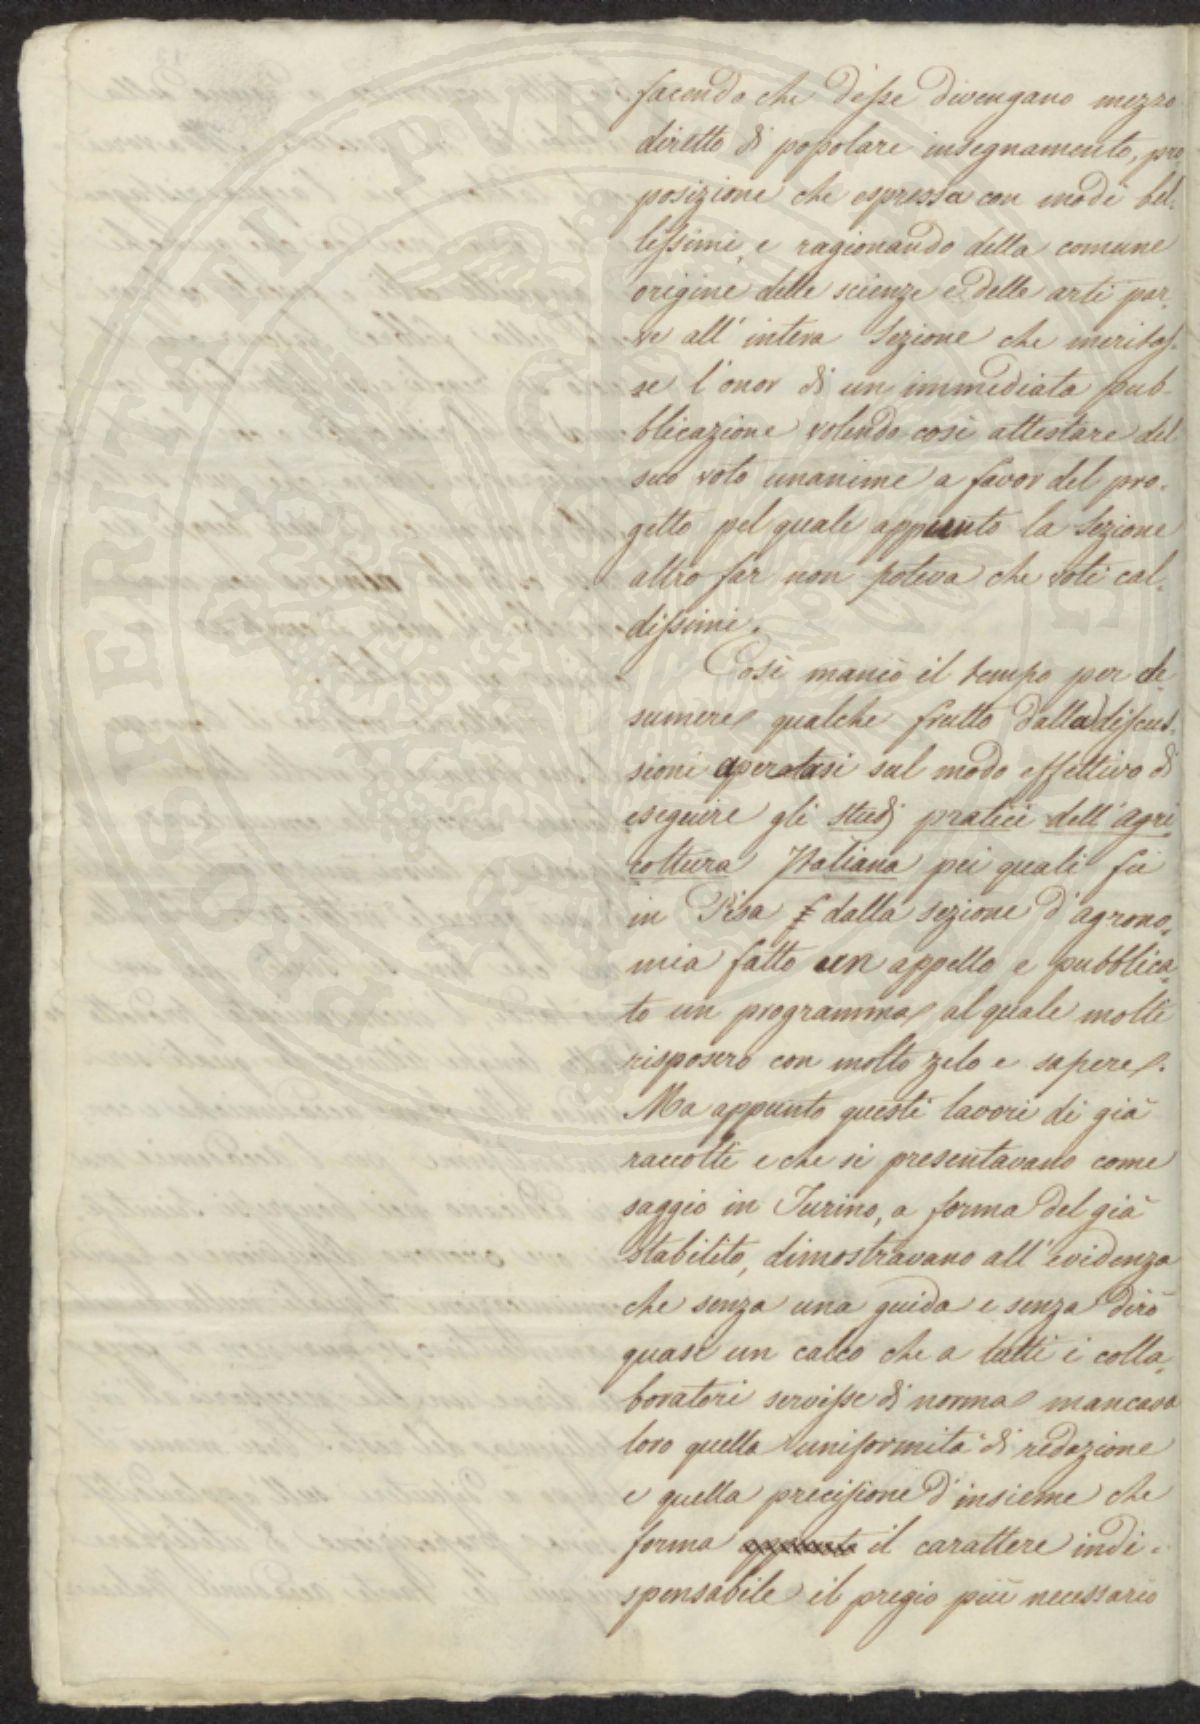 facendo che d'esse divengano mezzo
diretto di popolare insegnamento, pro
posizione che espressa con modi bel-
lissimi, e ragionando della comune
origine delle scienze e delle arti par-
ve all'intera Sezione che meritas-
se l'onor di un immediata pub-
blicazione volendo così attestare del
suo voto unanime a favor del pro-
getto pel quale appunto la Sezione
altro far non poteva che voti cal-
dissimi.
Così mancò il tempo per de
sumere qualche frutto dalla discus-
sioni apertasi sul modo effettivo di
eseguire gli studj pratici dell'agri
coltura Italiana pei quali fu
in Pisa dalla sezione d'agrono-
mia fatto un appello e pubblica-
to un programma al quale molti
risposero con molto zelo e sapere.
Ma appunto questi lavori di già
raccolti e che si presentavano come
saggio in Turino, a forma del già
stabilito, dimostravano all'evidenza
che senza una guida e senza dirò
quasi un calco che a tutti i colla-
boratori servisse di norma mancava
loro quella uniformità di redazione
e quella precisione d'insieme che
forma appunto il carattere indi-
spensabile il pregio più necessario